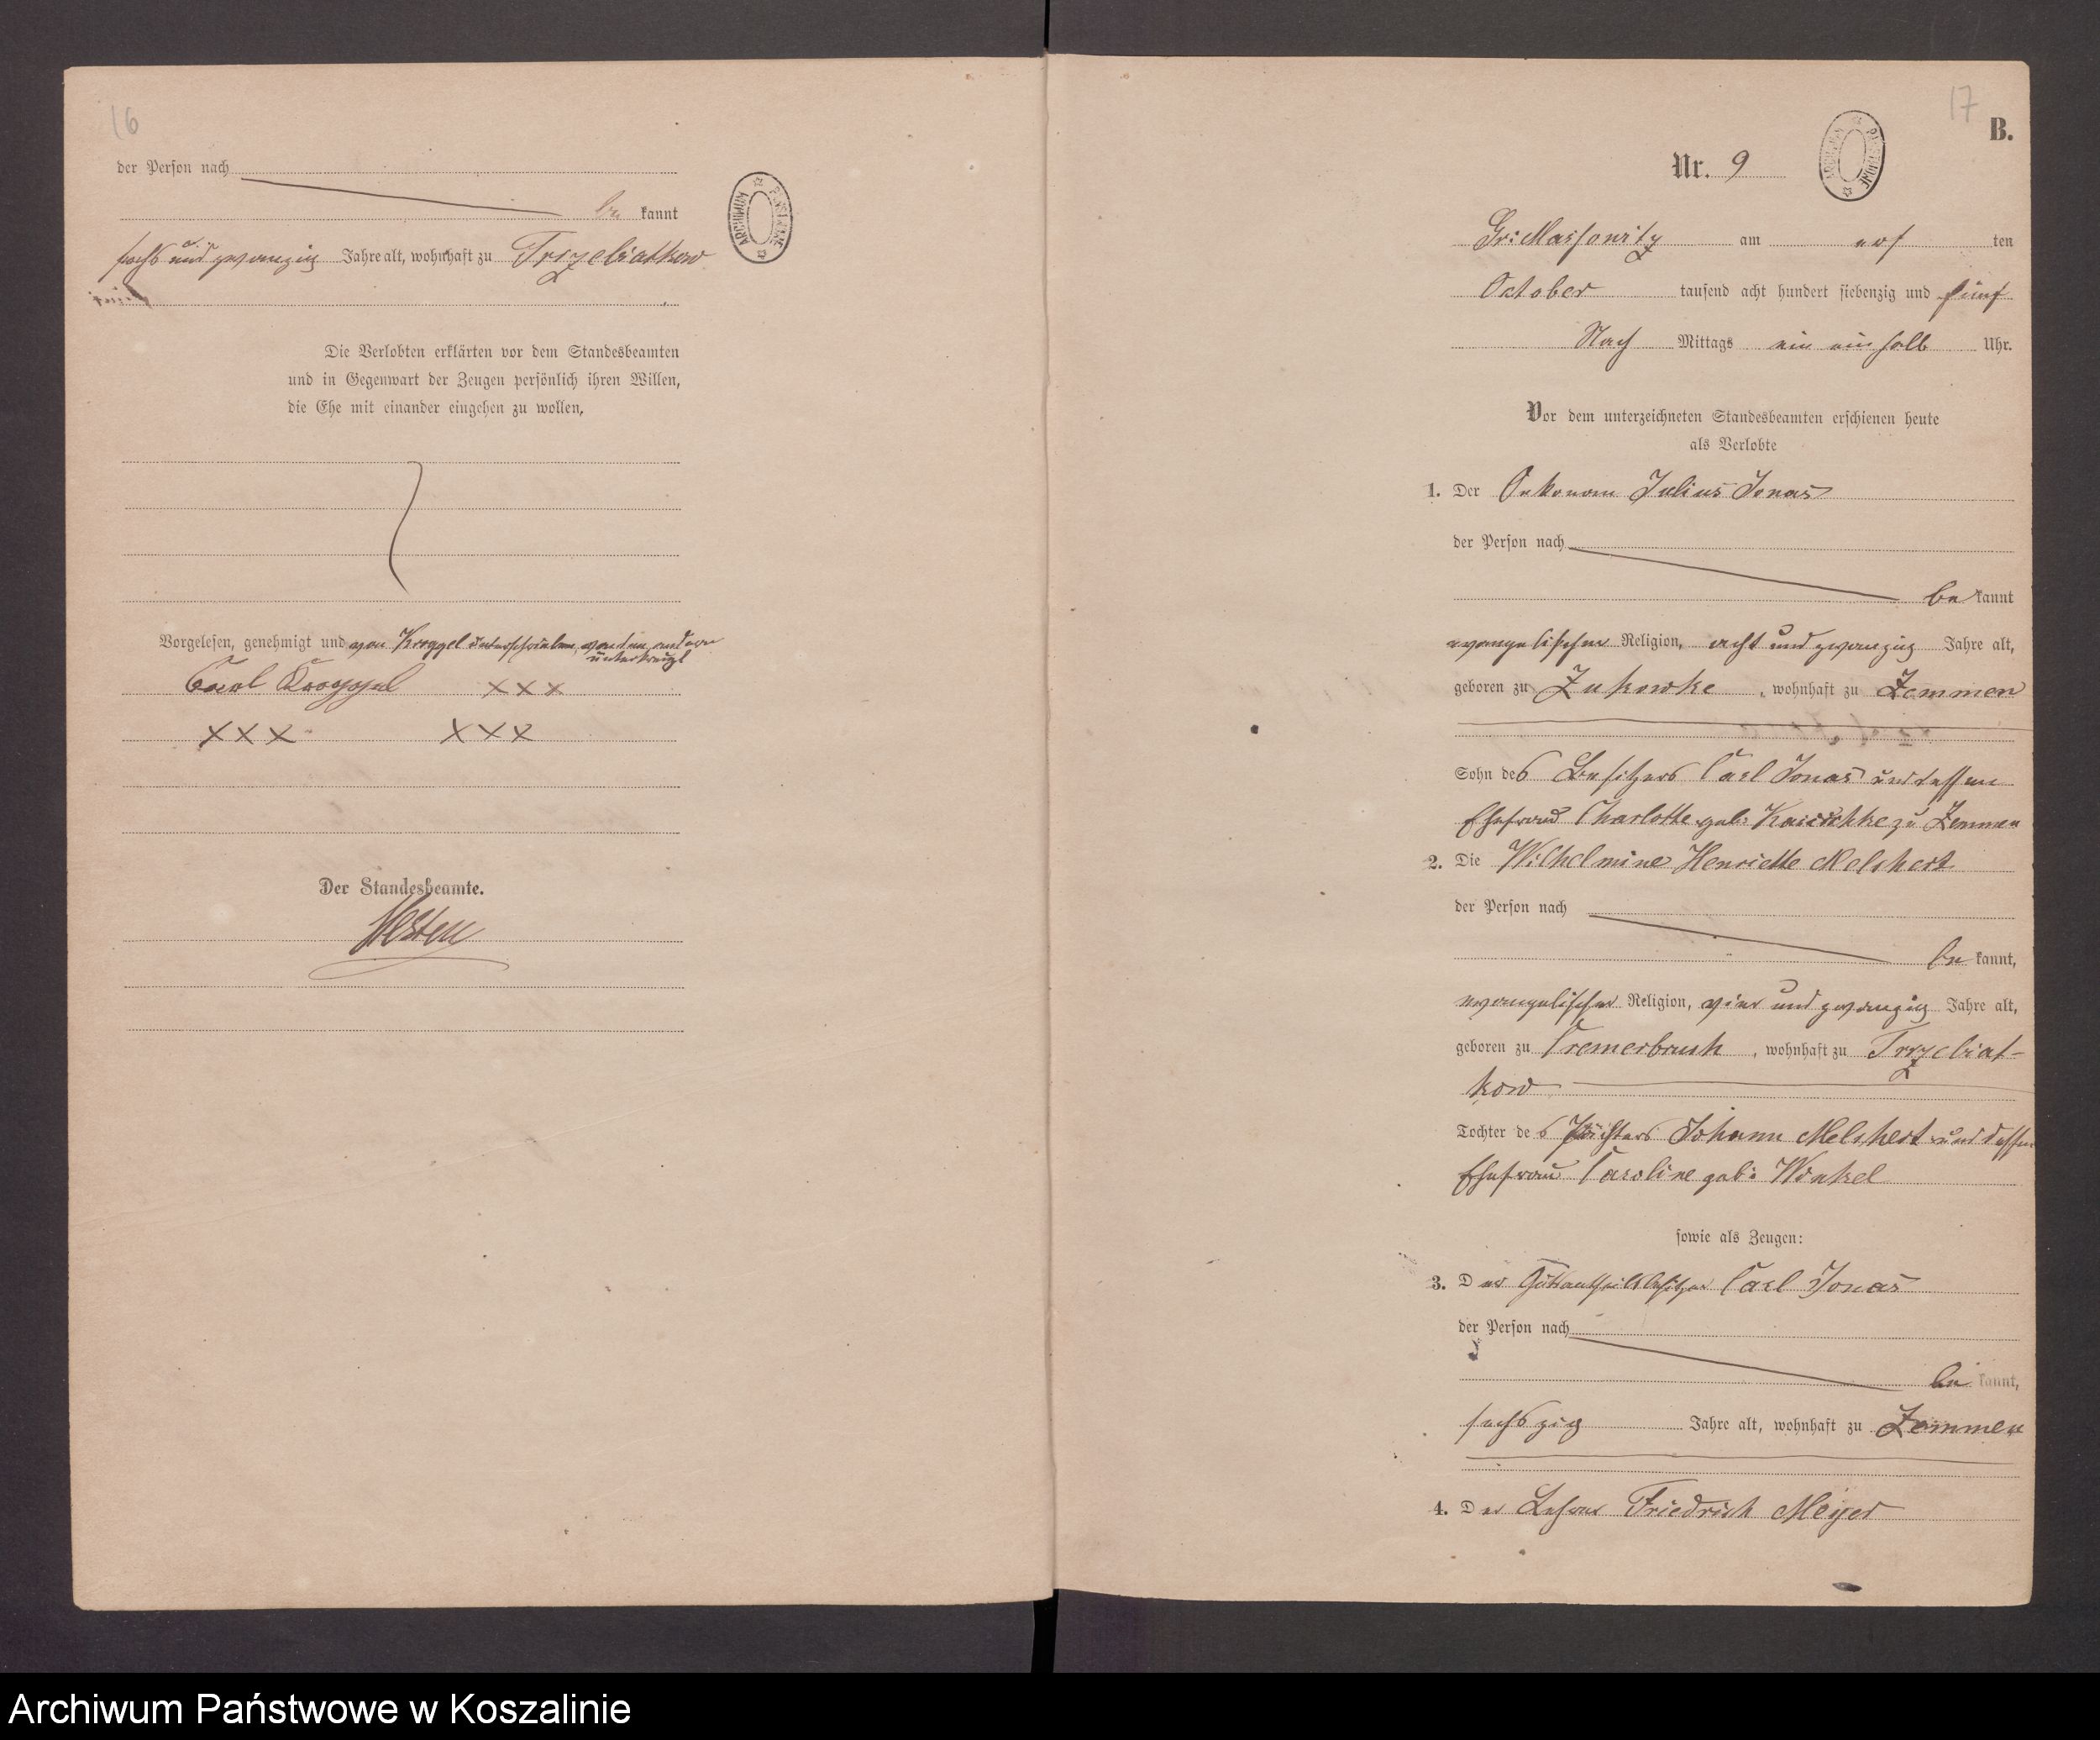 16
der Person nach
be kannt
sechs und zwanzig Jahre alt, wohnhaft zu Trzebiatkow
Die Verlobten erklärten vor dem Standesbeamten
und in Gegenwart der Zeugen persönlich ihren Willen,
die Ehe mit einander eingehen zu wollen.
Vorgelesen, genehmigt und von Kroggel unterschrieben, von den andern
unterkreuzt
Carl Kroggel XXX
XXX XXX
Der Standesbeamte.
ARCHIWUM PAŃSTWOWE
17
B.
Nr. 9
ARCHIWUM PAŃSTWOWE
Gr: Massowitz am ten
October tausend acht hundert siebenzig und fünf
Nach Mittags ein ein halb Uhr.
Vor dem unterzeichneten Standesbeamten erschienen heute
als Verlobte
1. Der Oekonom Julius Jonas
der Person nach
be kannt
evangelischer Religion, acht und zwanzig Jahre alt,
geboren zu Zukowke, wohnhaft zu Zemmen
Sohn des Besitzers Carl Jonas und dessen
Ehefrau Charlotte geb: zu Zemmen
2. Die Wilhelmine Henriette Melchert
der Person nach
be kannt,
evangelischer Religion, vier und zwanzig Jahre alt,
geboren zu Cremerbruch, wohnhaft zu Trzebiat-
kow
Tochter des Pächters Johann Melchert und dessen
Ehefrau Caroline geb: Winkel
sowie als Zeugen:
3. Der Gutsantheilsbesitzer Carl Jonas
der Person nach
be kannt,
sechszig Jahre alt, wohnhaft zu Zemmen
4. Der Lehrer Friedrich Meyer
Archiwum Państwowe w Koszalinie